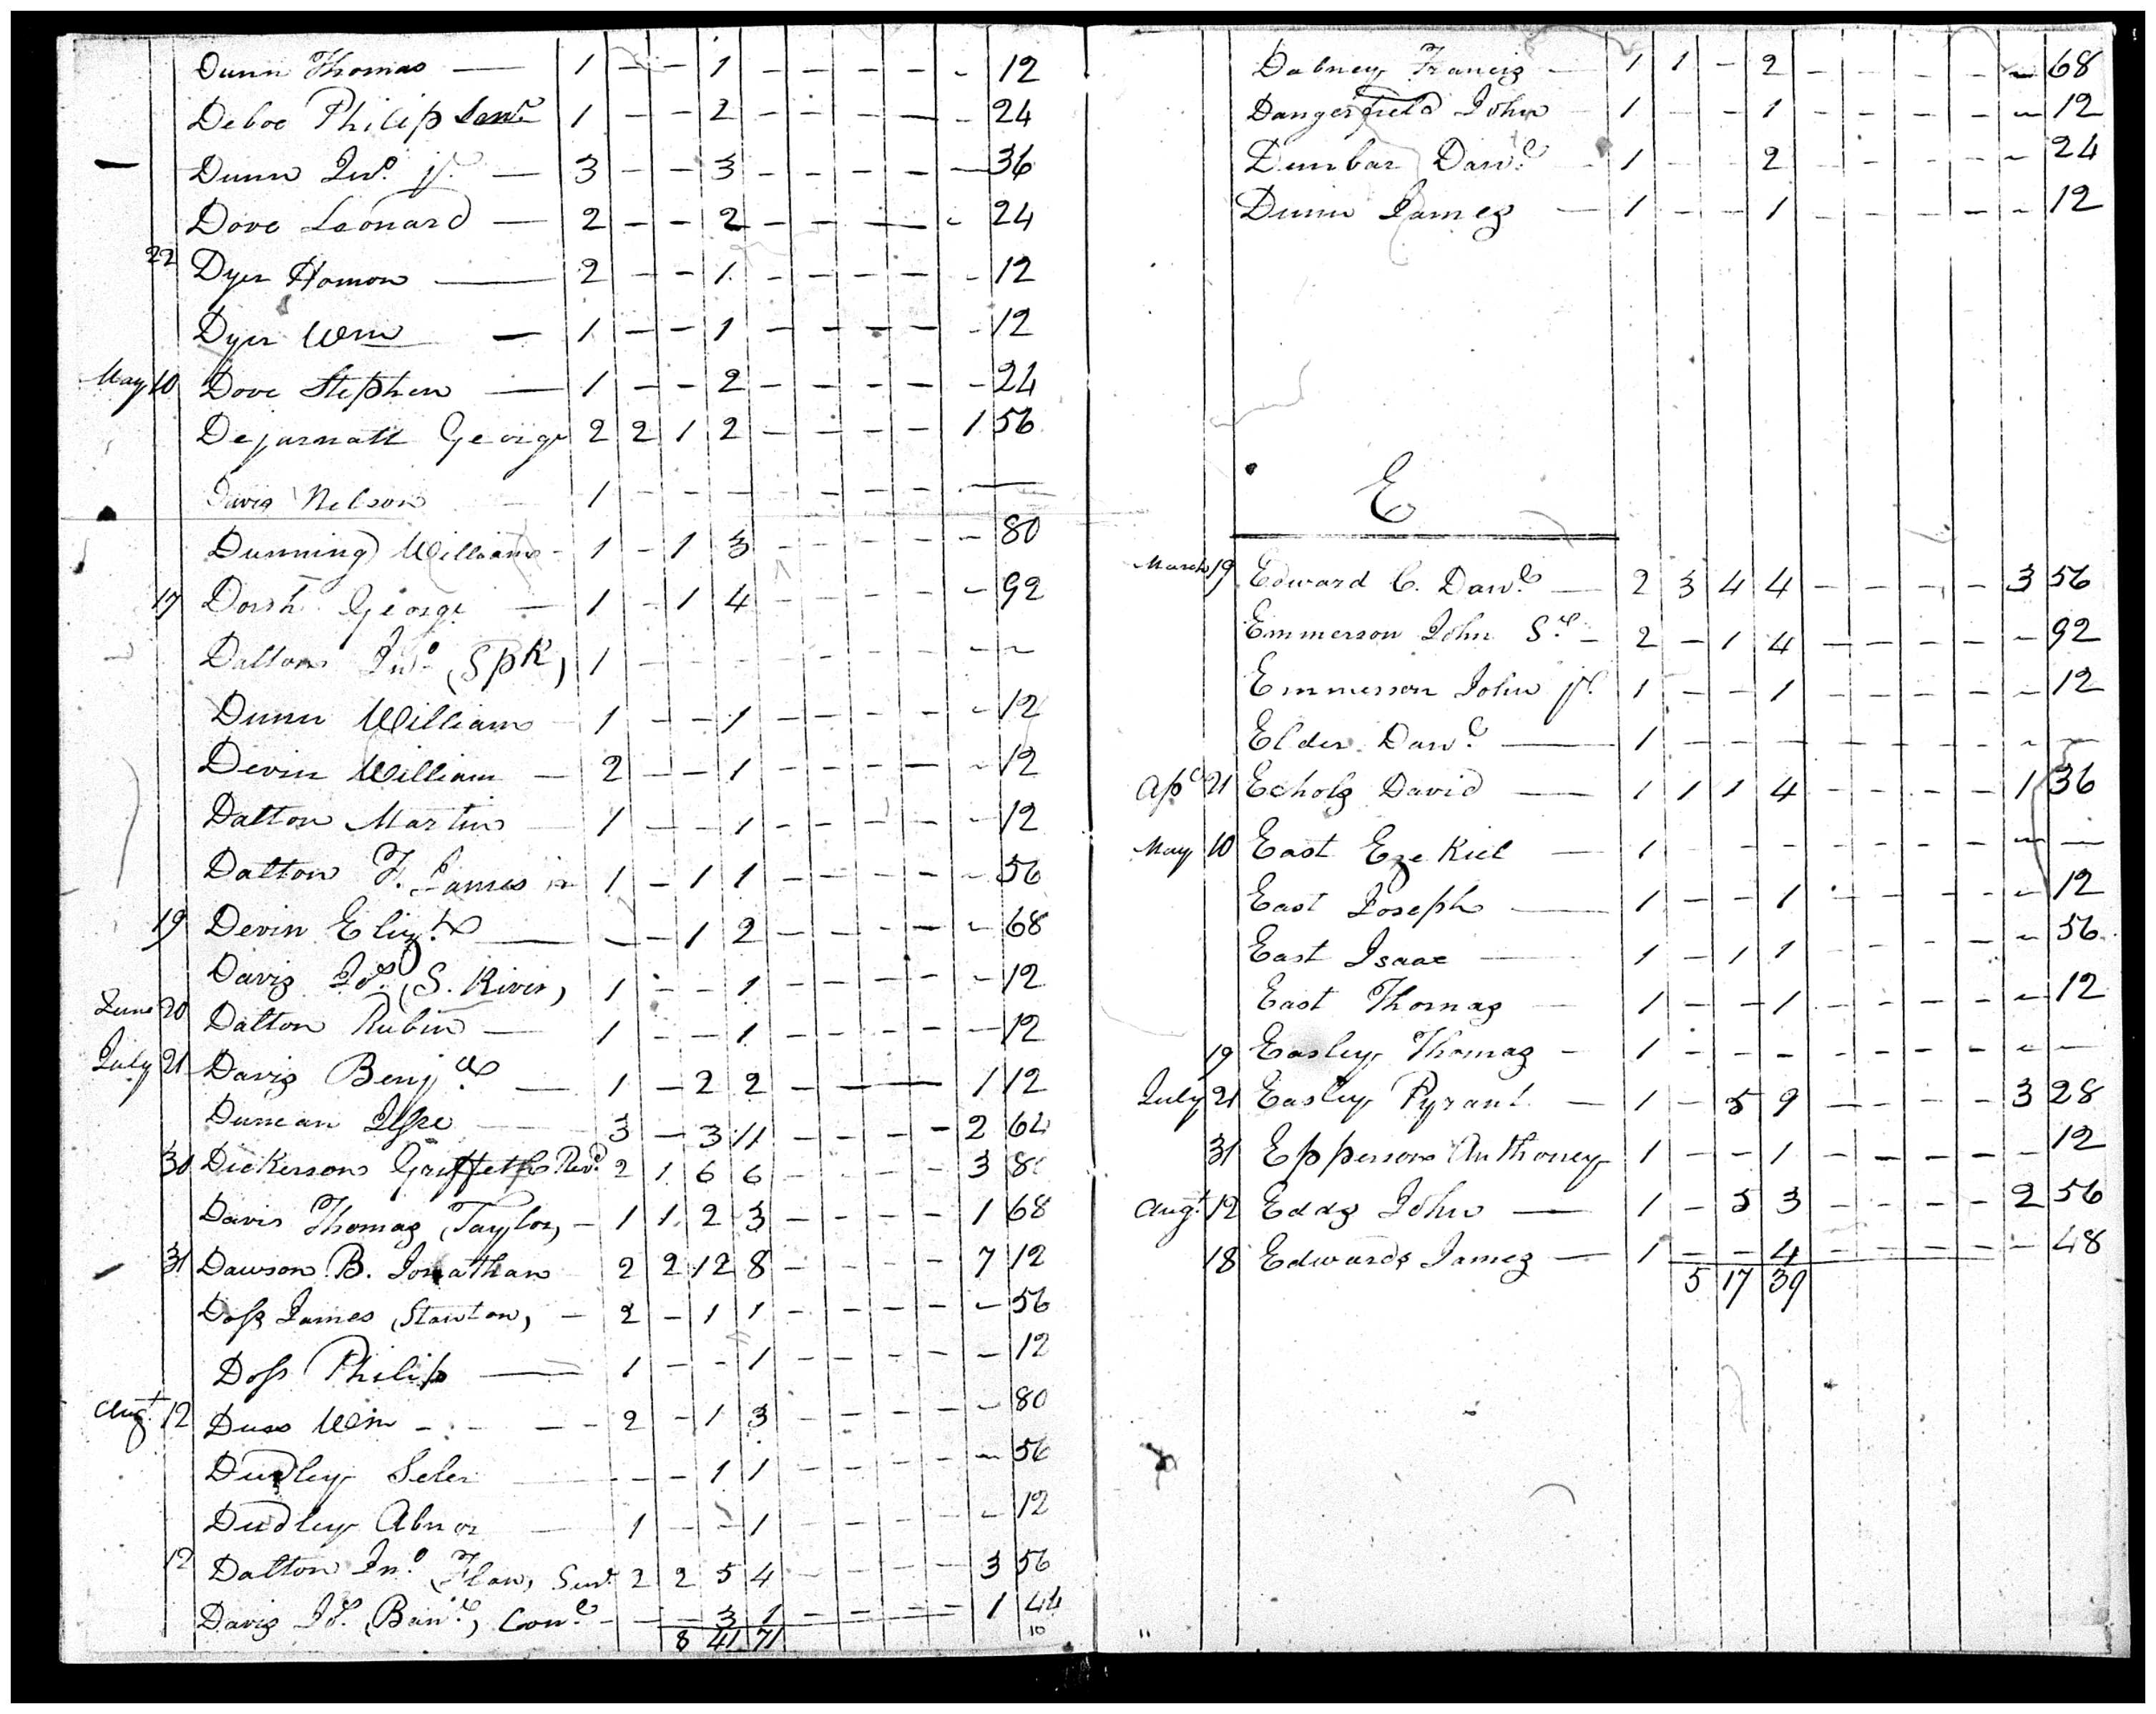 Dunn Thomas — 1 - - 1 - - - - - 12
Deboe Philip Senr 1 - - 2 - - - - - 24
Dunn Jno. Jr. — 3 - - 3 - - - - - 36
Dove Leonard — 2 - - 2 - - - - - 24
22 Dyer Hamon — 2 - - 1 - - - - - 12
Dyer Wm — 1 - - 1 - - - - - 12
May 10 Dove Stephen — 1 - - 2 - - - - - 24
Dejarnatt George 2 2 1 2 - - - - 1 56
Davis Nelson 1 - - - - - - - - —
Dunning William - 1 - 1 3 - - - - - 80
17 George — 1 - 1 4 - - - - - 92
Dalton Jno. (SpK) 1 - - - - - - - - -
Dunn William 1 - - 1 - - - - - 12
Devin William — 2 - - 1 - - - - - 12
Dalton Martin 1 - - 1 - - - - - 12
Dalton F. James 1 - 1 1 - - - - - 56
19 Devin Elizth — - - 1 2 - - - - - 68
Davis Jos. (S. River) 1 - - 1 - - - - - 12
June 20 Dalton Rubin — 1 - - 1 - - - - - 12
July 21 Davis Benja — 1 - 2 2 - - - - 1 12
Duncan Jesse 3 - 3 11 - - - - 2 64
30 Dickerson Griffeth Revd. 2 1 6 6 - - - - 3 8
Davis Thomas (Taylor) - 1 1 2 3 - - - - 1 68
31 Dawson B. Jonathan 2 2 12 8 - - - - 7 12
Doss James (Stanton) - 2 - 1 1 - - - - - 56
Doss Philip — 1 - - 1 - - - - - 12
Augt 12 Duss Wm - - - 2 - 1 3 - - - - - 80
Dudley - - 1 1 - - - - - 56
Dudley Abner 1 - - 1 - - - - - 12
12 Dalton Jno. Senr. 2 2 5 4 - - - - 3 56
Davis Jos. (Banr.) - - - 3 1 - - - - 1 44
8 41 71 10
Dabney Francis — 1 1 - 2 - - - - - 68
Dangerfield John 1 - - 1 - - - - - 12
Dunbar Danl. - 1 - - 2 - - - - - 24
Dunn James — 1 - - 1 - - - - - 12
E
March 19 Edward C. Danl. — 2 3 4 4 - - - - 3 56
Emmerson John Sr. - 2 - 1 4 - - - - - 92
Emmerson John Jr. 1 - - 1 - - - - - 12
Elder Danl. — 1 - - - - - - - - —
Apl 21 Echols David — 1 1 1 4 - - - - 1 36
May 10 East Ezekiel — 1 - - - - - - - - —
East Joseph — 1 - - 1 - - - - - 12
East Isaac — 1 - 1 1 - - - - - 56
East Thomas — 1 - - 1 - - - - - 12
19 Easley Thomas - 1 - - - - - - - - —
July 21 Easley Pyrant — 1 - 5 9 - - - - 3 28
31 Epperson Anthoney 1 - - 1 - - - - - 12
Augt 12 Edds John — 1 - 5 3 - - - - 2 56
18 Edwards James — 1 - - 4 - - - - - 48
5 17 39
"